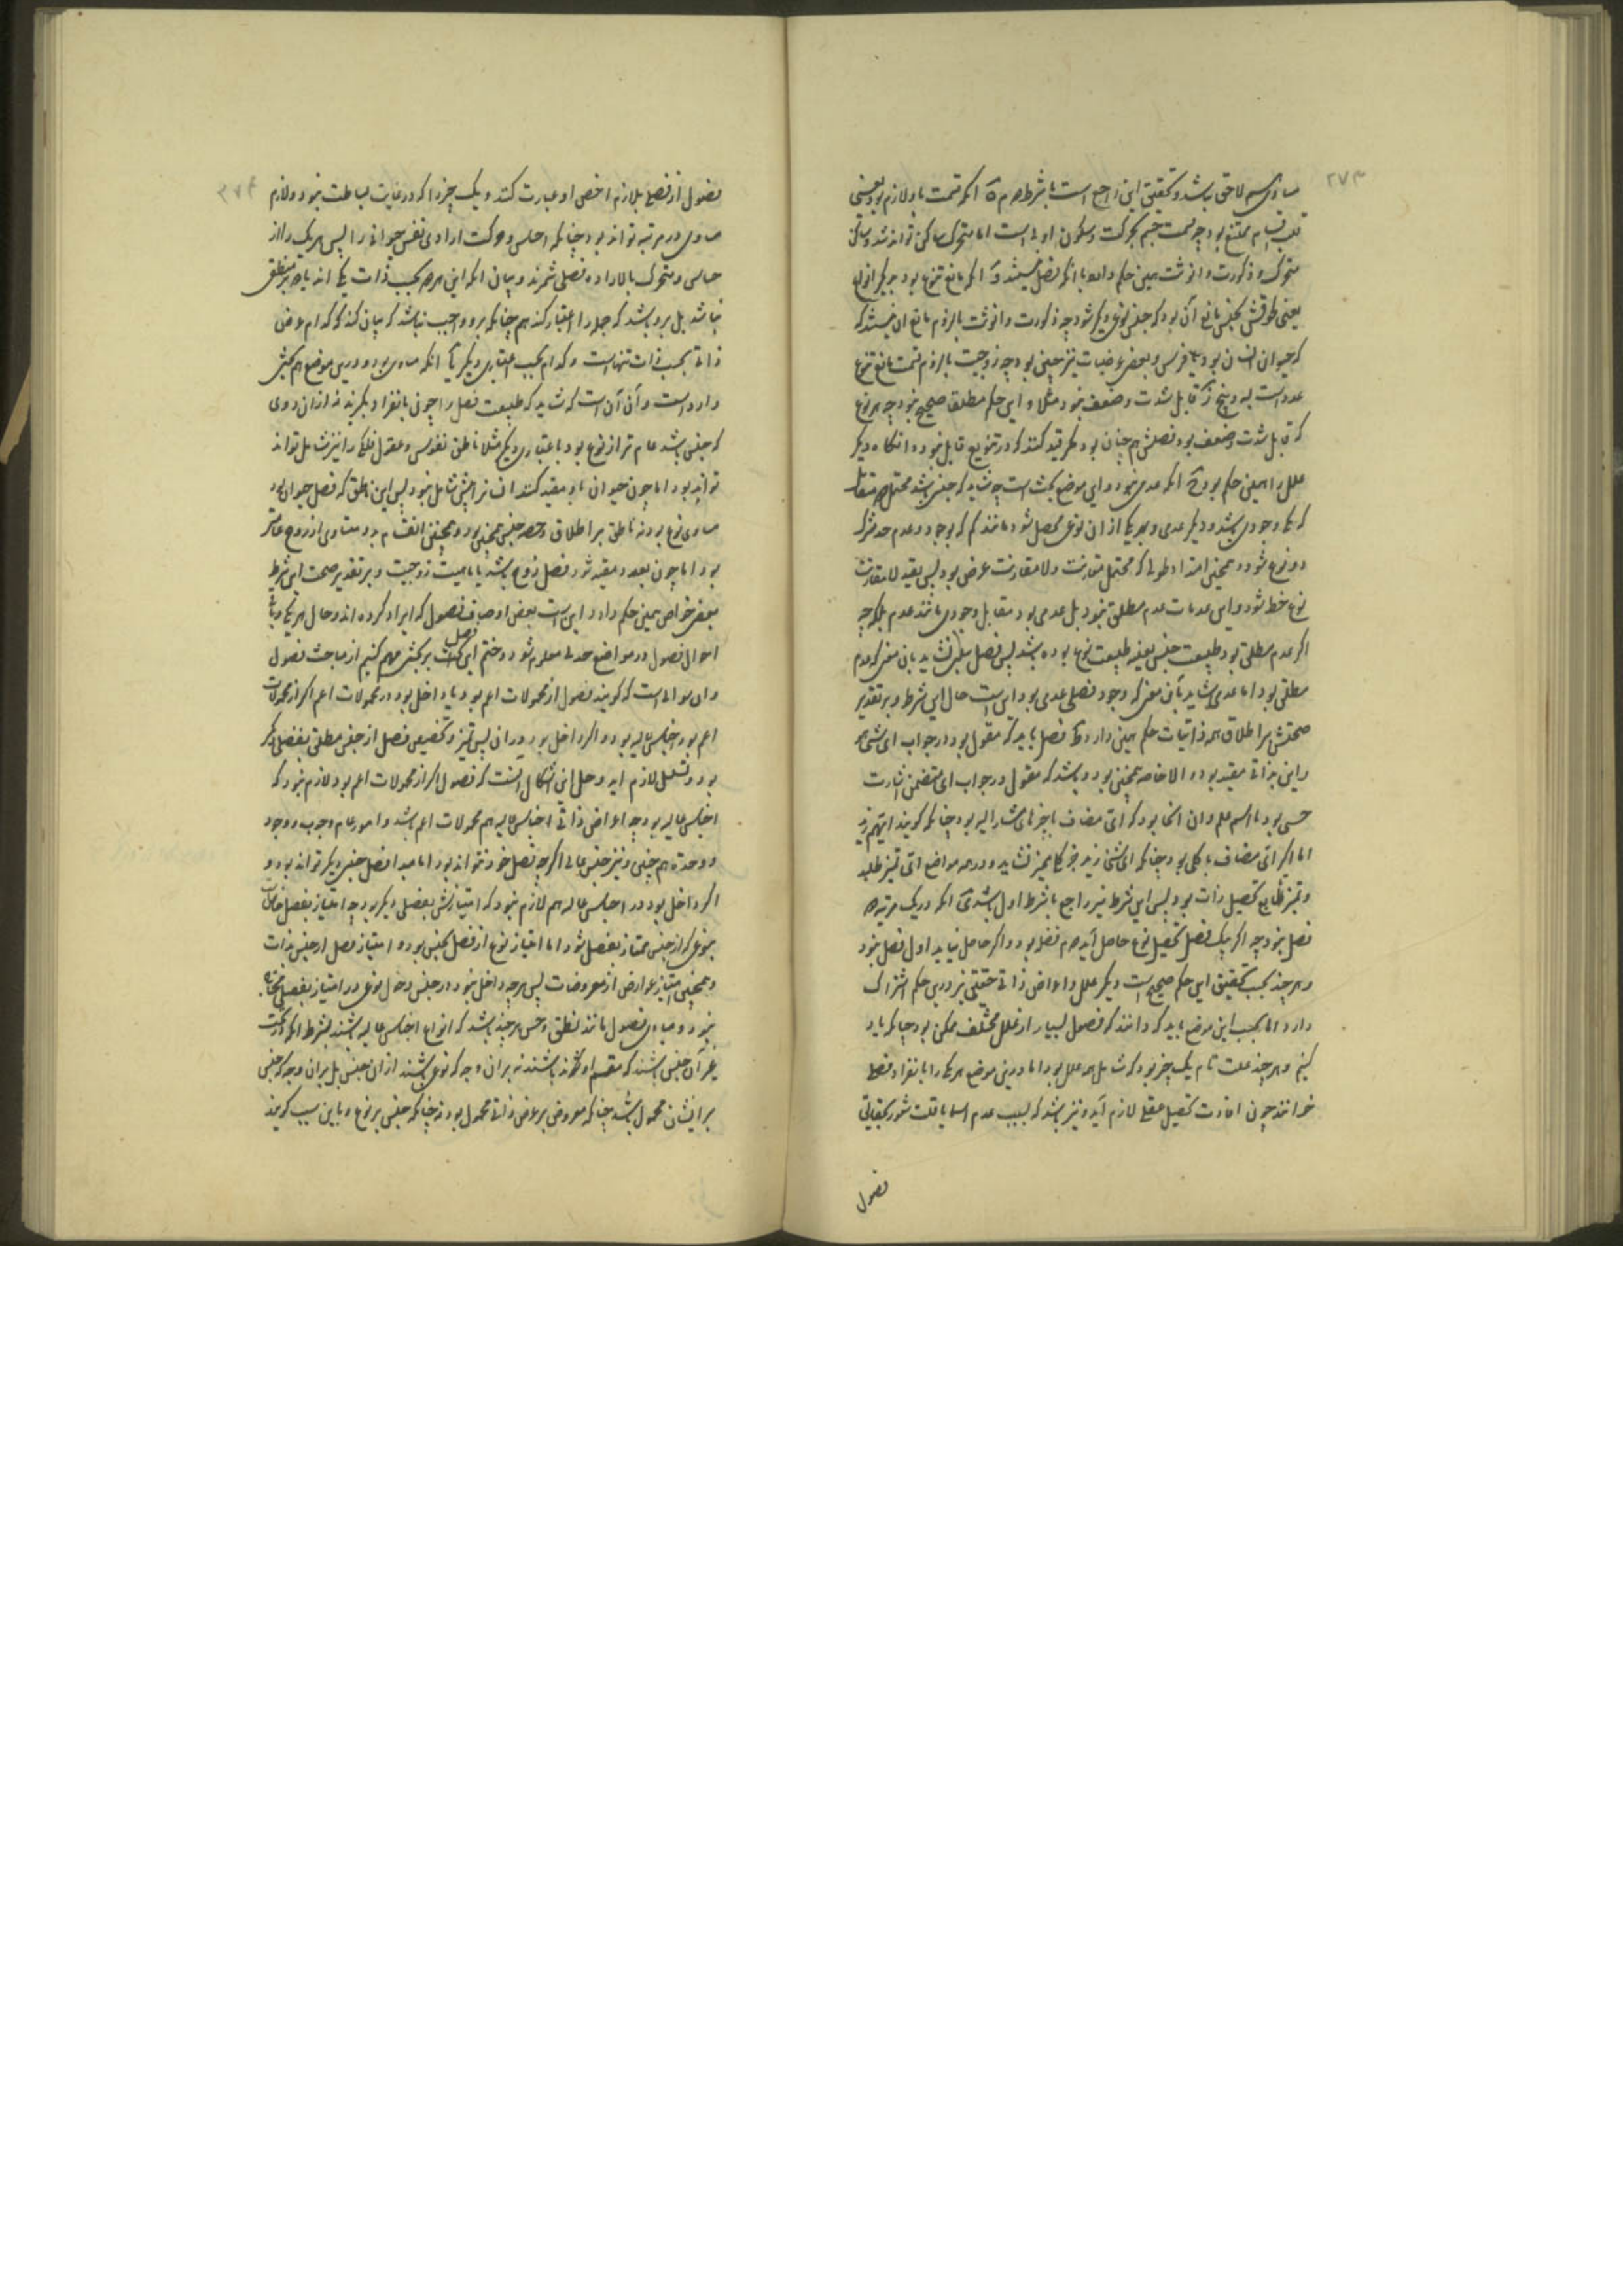 ۲۷۳
مساوی سم لاحق باشد و تحقیق این راجع است با شرط دوم آنکه قسمت باو لازم بود یعنی
قلب اقسام ممتنع بود چه قسمت جسم بحرکت و سکون اولی است اما متحرک ساکن تواند شد و ساکن
متحرک و ذکورت و انوثت همین حکم دارد با آنکه فصل نیستند و آنکه مانع تنوع بود بدیگر انواع
یعنی لحوقش بجنس مانع آن بود که جنس نوعی دیگر شود چه ذکورت و انوثت بالزوم مانع آن نیستند که
که حیوان انسان بود یا فرس و بعضی عرضیات نیز چنین بود چه زوجیت بالزوم قسمت مانع تنوع
عدد است به و پنج قابل شدت و ضعف نبود مثلا و این حکم مطلقا صحیح نبود چه هر نوع
که قابل شدت و ضعف بود فصلش هم چنان بود مگر قید کنند که در تنویع قابل نبود و آنگاه دیگر
علل را همین حکم بود آنکه عدمی نبود و این موضع بحث است چه شاید که جنس باشد محتمل دو متقابل
که یکی وجودی باشد و دیگر عدمی و بهر یکی از آن نوعی محصل شود مانند کم که بوجود و عدم حد مشترک
دو نوع شود و همچنین امتداد طولی که محتمل مقارنت و لا مقارنت عرض بود پس بقید لا مقارنت
نوع خط شود و این عدمات عدم مطلق نبود بل عدمی بود مقابل وجودی مانند عدم ملکه چه
اگر عدم مطلق بود طبیعت جنس بعینه طبیعت نوع بوده باشد پس فصل سلبی نشاید بآن معنی که عدم
مطلق بود اما عدمی شاید بآن معنی که وجود فصلی عدمی بود این است حال این شرط و بر تقدیر
صحتش بر اطلاق همه ذاتیات حکم همین دارد فصل باید که مقول بود در جواب ای شیء هو
و این بذاتی مقید بود و الا خاصه همچنین بود و باشد که مقول در جواب ای متضمن اشارت
حسی بود یا اسم علم و آن آنجا بود که ای مضاف با چیزهای مشار الیه بود چنانکه گویند ایهم زید
اما اگر ای مضاف با کلی بود چنانکه ای شیء زید جز کلی ممیز نشاید و در همه مواضع ای تمیز طلبد
و تمیز طالع تحصیل ذات بود پس این شرط نیز راجع با شرط اول باشد آنکه در یک مرتبه دو
فصل نبود چه اگر بیک فصل تحصیل نوع حاصل آید دوم فضله بود و اگر حاصل نیاید اول فصل نبود
و هر چند بحسب تحقیق این حکم صحیح است و دیگر علل و اعراض ذاتی حقیقی نیز درین حکم اشتراک
دارد اما بحسب این موضع باید که دانند که فصول بسیار از علل مختلف ممکن بود چنانکه یاد
کنیم و هر چند علت تام یک چیز بود که شامل همه علل بود اما درین موضع هر یکی را بانفراد فصلی
خوانند چون افادت تحصیل عقلی لازم آید و نیز باشد که بسبب عدم اسما یا قلت شعور بحقایق
فصول
۲۷۴
فصول از فصلی بلازم اخص او عبارت کنند و یک چیز را که در غایت بساطت نبود دو لازم
مساوی در مرتبه تواند بود چنانکه احساس و حرکت ارادی نفس حیوانی را پس هر یک را از
حساس و متحرک بالاراده فصلی شمرند و بیان آنکه این هر دو بحسب ذات یکی اند یا دو بر منطقی
نباشد بل برو باشد که جمله را اعتبار کند هم چنانکه برو واجب نباشد که بیان کند که کدام عرض
ذاتی بحسب ذات تنهاست و کدام بحسب اعتباری دیگر آنکه مساوی بود و درین موضع هم بحثی
وارد است و آن آن است که شاید که طبیعت فصل را چون بانفراد بگیرند نه از آن روی
که جنس باشد عام تر از نوع بود باعتباری دیگر مثلا ناطق نفوس و عقول فلکی را نیز شامل تواند
تواند بود اما چون حیوان باو مقید کنند انسان را بیش شامل نبود پس این ناطق که فصل حیوان بود
مساوی نوع بود نه ناطق بر اطلاق و حصه جنس همچنین بود و همچنین انقسام بدو متساوی از زوج عام‌تر
بود اما چون بعدد مقید شود فصل زوج باشد یا ماهیت زوجیت و بر تقدیر صحت این شرط
بعضی خواص همین حکم دارد این است بعضی اوصاف فصول که ایراد کرده‌اند و حال هر یکی و باقی
احوال فصول در مواضع حدلی معلوم شود و ختم این فصل بر بحثی مهم کنیم از مباحث فصول
و آن سوالی است که گویند فصول از محمولات اعم بود یا داخل بود در محمولات اعم اگر از محمولات
اعم بود اجناس عالیه بود و اگر داخل بود در آن پس تمیز و تخصیص فصل از جنس مطلق بفصلی دیگر
بود و تسلسل لازم آید و حل این اشکال آنست که فصول اگر از محمولات اعم بود لازم نبود که
اجناس عالیه بود چه اعراض ذاتی اجناس عالیه هم محمولات اعم باشد و امور عام وجوب و وجود
و وحدت هم چنین و نیز جنس عالی اگر چه فصل خود نتواند بود اما مبدا فصل جنس دیگر تواند بود و
اگر داخل بود در اجناس عالیه هم لازم نبود که امتیازش بفصلی دیگر بود چه امتیاز بفصل خاص
بنوعی که از جنس ممتاز بفصل شود اما امتیاز نوع از فصل بجنس بود و امتیاز فصل از جنس بذات
و همچنین امتیاز عوارض از معروضات پس هر چه داخل نبود در جنس دخول نوعی در امتیاز بفصل محتاج
نبود و مبادی فصول مانند نطق و حس هر چند باشد که انواع اجناس عالیه باشند بشرط آنکه در تحت
غیر آن جنس باشند که مقسم او باشند نه بر آن وجه که نوعی باشند از آن جنس بل بر آن وجه که جنس
بر ایشان محمول باشد چنانکه معروض بر عرض ذاتی محمول بود نه چنانکه جنس بر نوع و باین سبب گویند